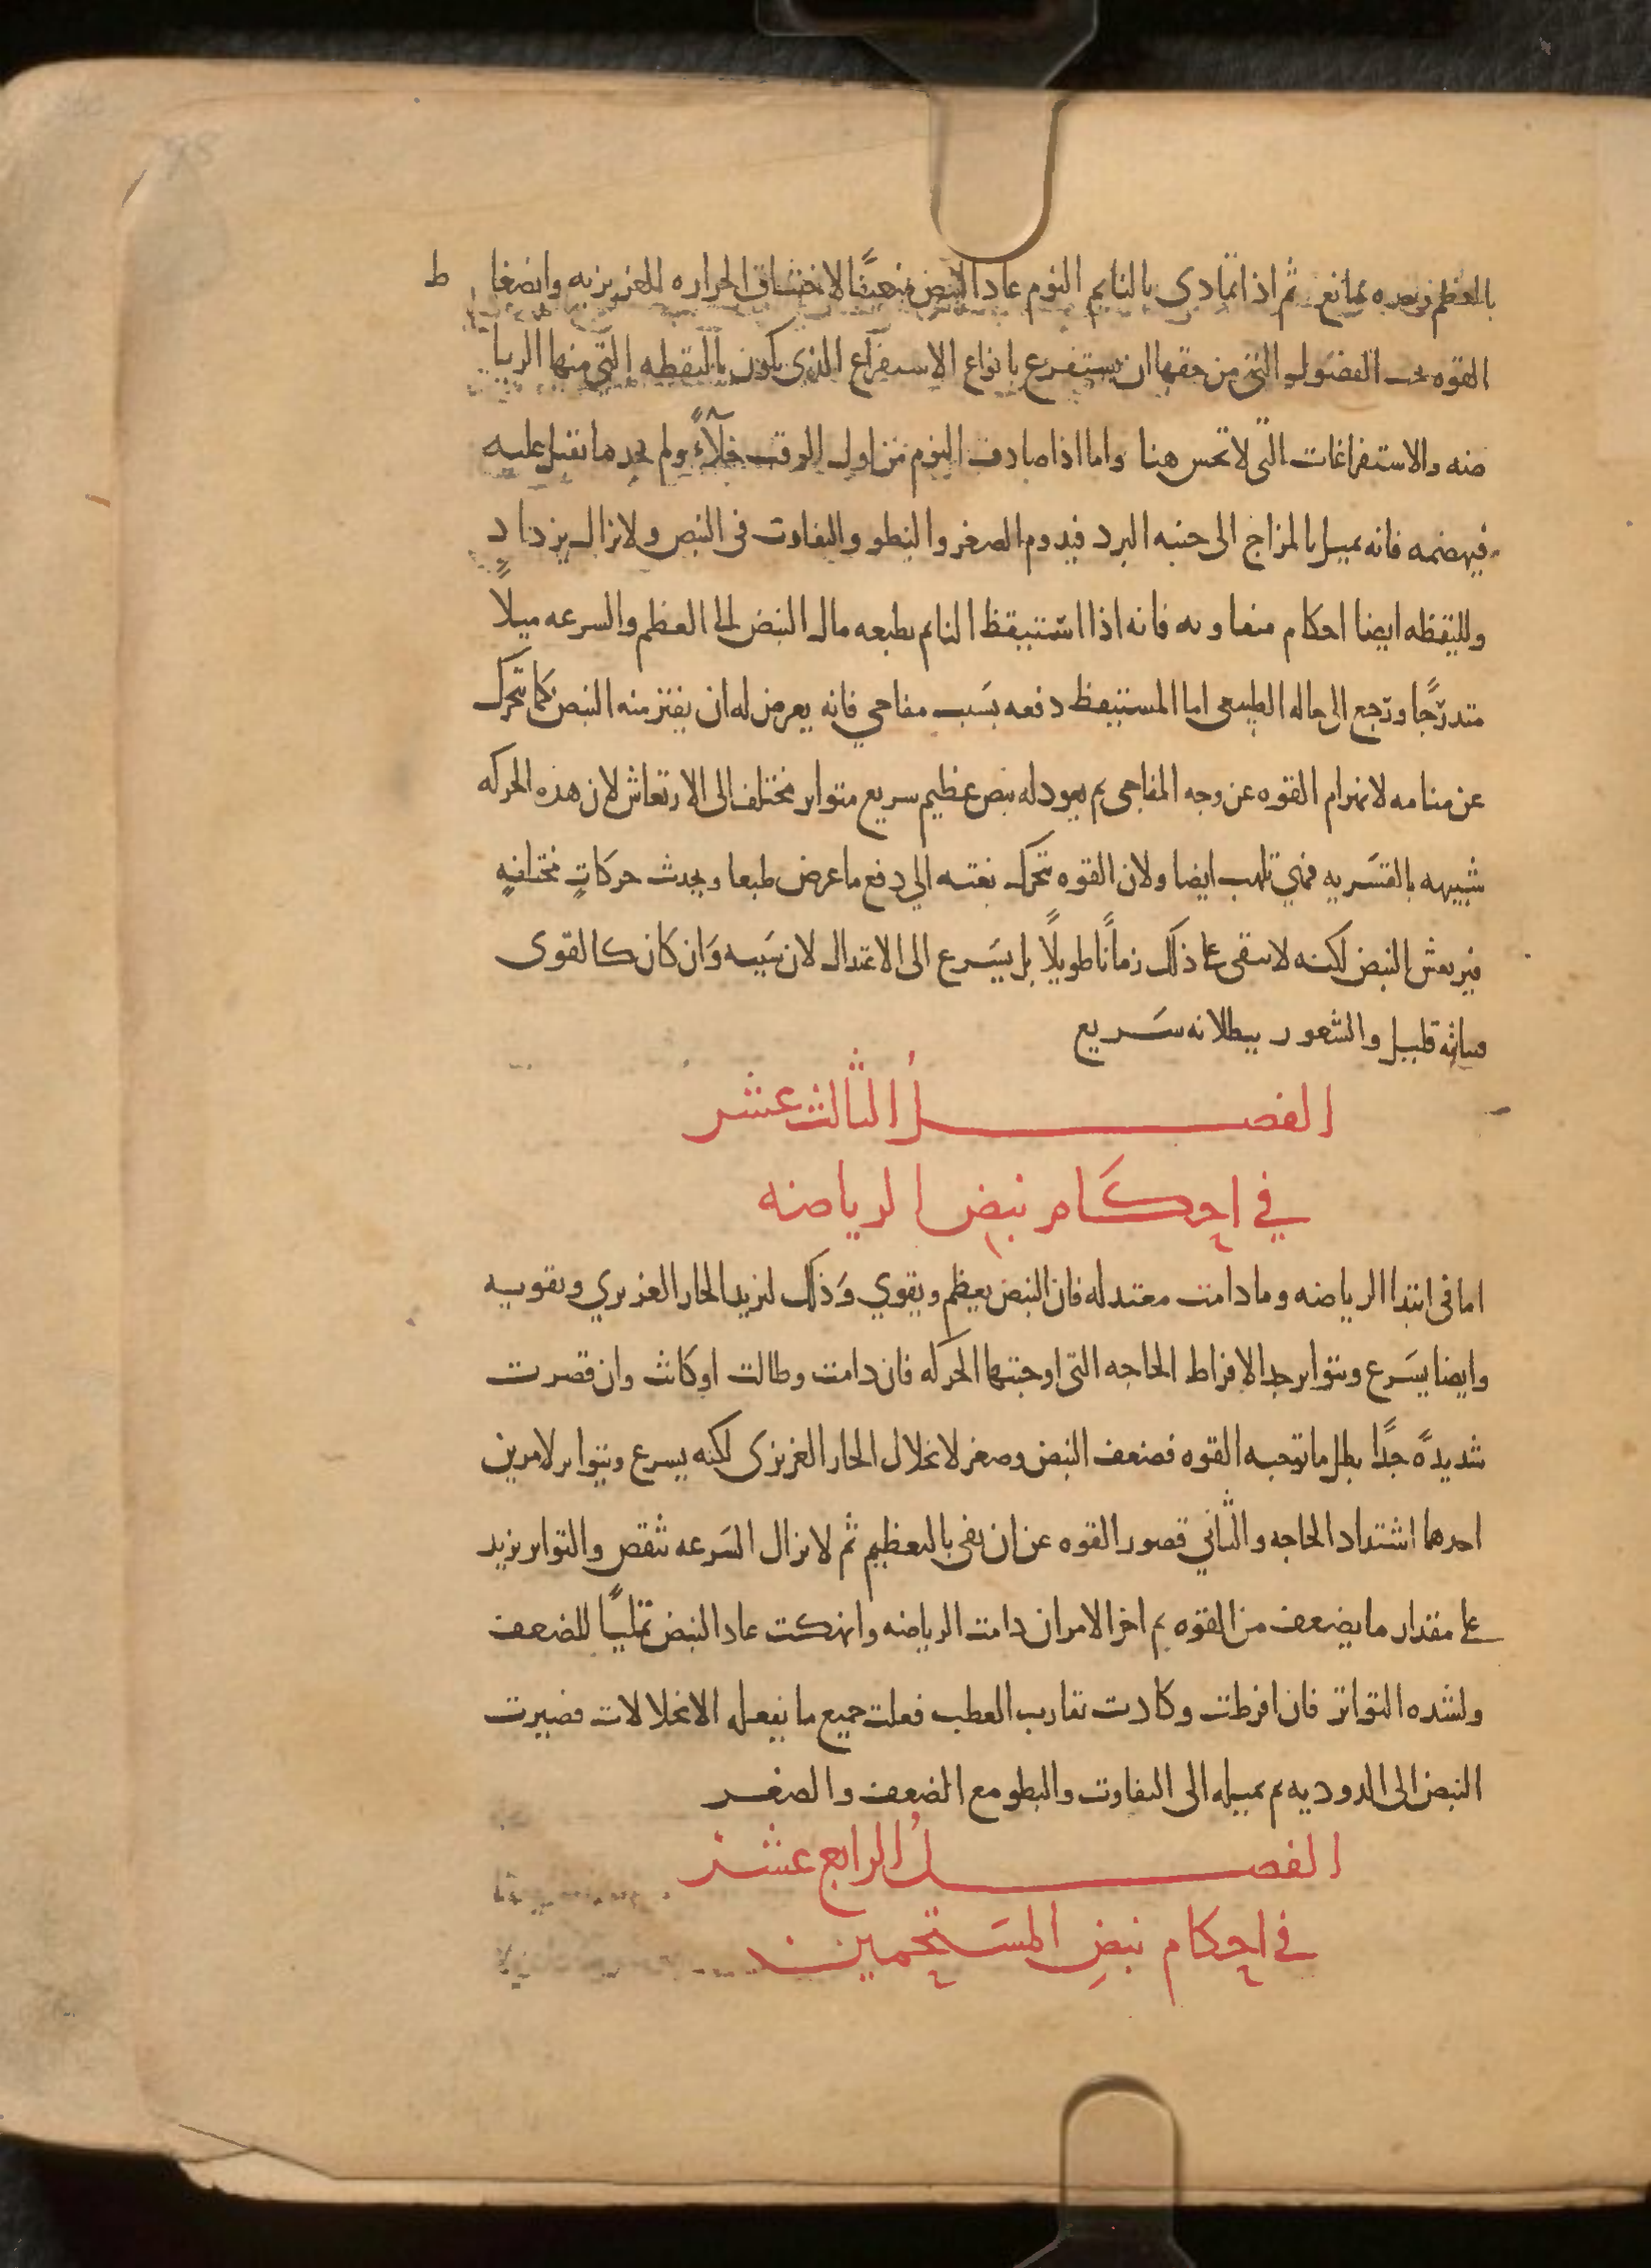 بالعظم وبعده بمانع ثم اذا تمادى بالنايم النوم عاد النبض ضعيفًا لاختناق الحراره الغريزيه وانضغا ط
القوه تحت الفضول التى من حقها ان يستفرغ بانواع الاستفراغ الذى يكون باليقظه التى منها الريا
ضه والاستفراغات التى لا تحس هنا واما اذا صادف النوم من اول الوقت خلآءً ولم يجد ما يقبل عليه
فيهضمه فانه يميل بالمزاج الى جنبه البرد فيدوم الصغر والبطو والتفاوت فى النبض ولا يزال يزداد
ولليقظه ايضا احكام متفاوته فانه اذا استيقظ النايم بطبعه مال النبض الى العظم والسرعه ميلاً
متدرّجًا ورجع الى حاله الطبيعى اما المستيقظ دفعه بسَبب مفاجي فانه يعرض له ان يفتر منه النبض كما تحرك
عن منامه لانهزام القوه عن وجه المفاجى ثم يعود له نبض عظيم سريع متواتر مختلف الى الارتعاش لان هذه الحركه
شبيهه بالقسَريه فهي تلهب ايضا ولان القوه تتحرك بغته الي دفع ما عرض طبعا ويحدث حركاتٍ مختلفةٍ
فيرتعش النبض لكنه لا يبقى على ذلك زمانًا طويلًا بل يسَرع الى الاعتدال لان سَببه وَان كان كالقوى
فثباته قليل والشعور ببطلانه سَريع
الفصلُ الثالث عشر
في احكَام نبض الرياضه
اما فى ابتدا الرياضه وما دامت معتدله فان النبض يعظم ويقوي وَذلك لتزيد الحار الغريزي وتقويه
وايضا يسَرع ويتواتر جدا لافراط الحاجه التى اوجبتها الحركه فان دامت وطالت او كانت وان قصرت
شديدةً جدًا بطل ما توجبه القوه فضعف النبض وصغر لانحلال الحار الغريزى لكنه يسرع ويتواتر لامرين
احدهما اشتداد الحاجه والثاني قصور القوه عن ان تفى بالتعظيم ثم لا تزال السَرعه تنقص والتواتر يزيد
على مقدار ما يضعف من القوه ثم اخر الامر ان دامت الرياضه وانهكت عاد النبض نمليًا للضعف
ولشده التواتر فان افرطت وكادت تقارب العطب فعلت جميع ما يفعله الانحلالات فصيرت
النبض الى الدوديه ثم تميله الى التفاوت والبطو مع الضعف والصغر
الفصلُ الرابع عشر
فى احكام نبضِ المسَتحمين